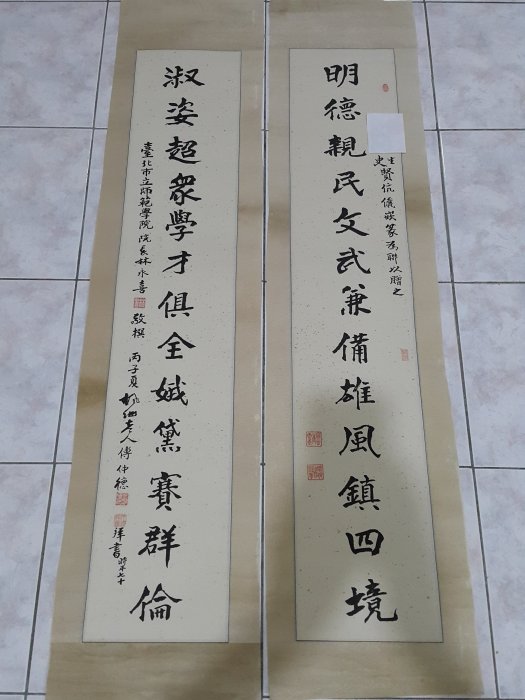 明德親民文武兼備雄風鎮四境
生
史
賢伉儷嵌篆為聯以贈之
淑姿超衆學才俱全娥黛賽群倫
臺北市立師範學院 院長林永喜 敬撰 丙子夏 老人傅仲德 書 時年七十